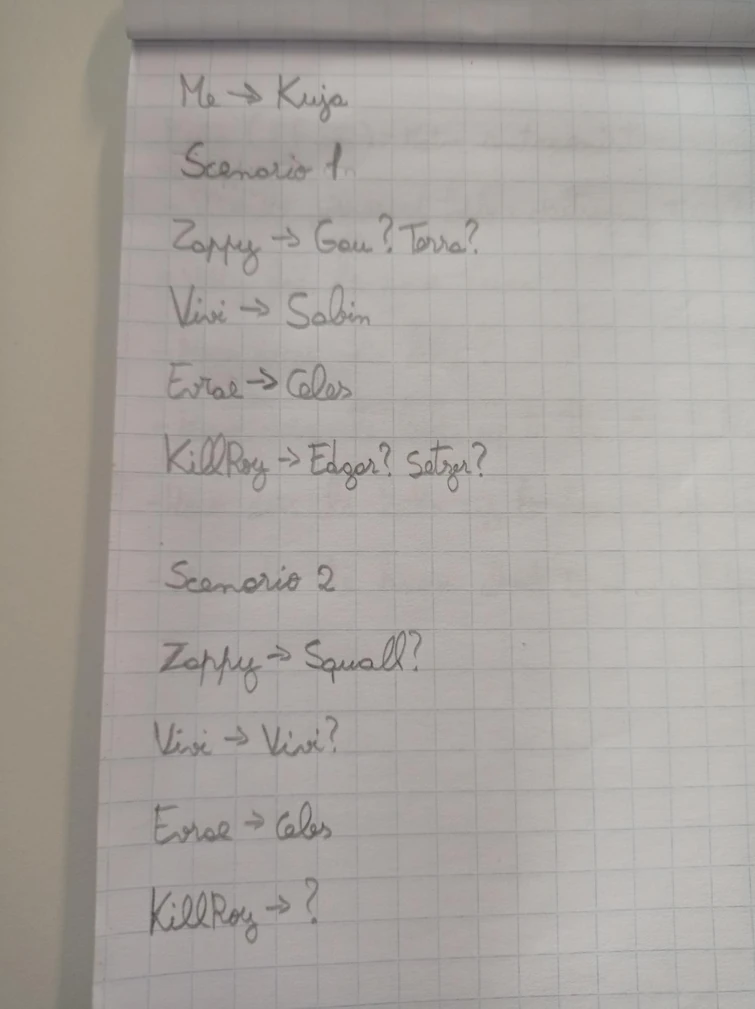 Me → Kuja
Scenario 1
Zappy → Gau? Terra?
Vivi → Sabin
Evrae → Celes
KillRoy → Edgar? Setzer?
Scenario 2
Zappy → Squall?
Vivi → Vivi?
Evrae → Celes
KillRoy → ?